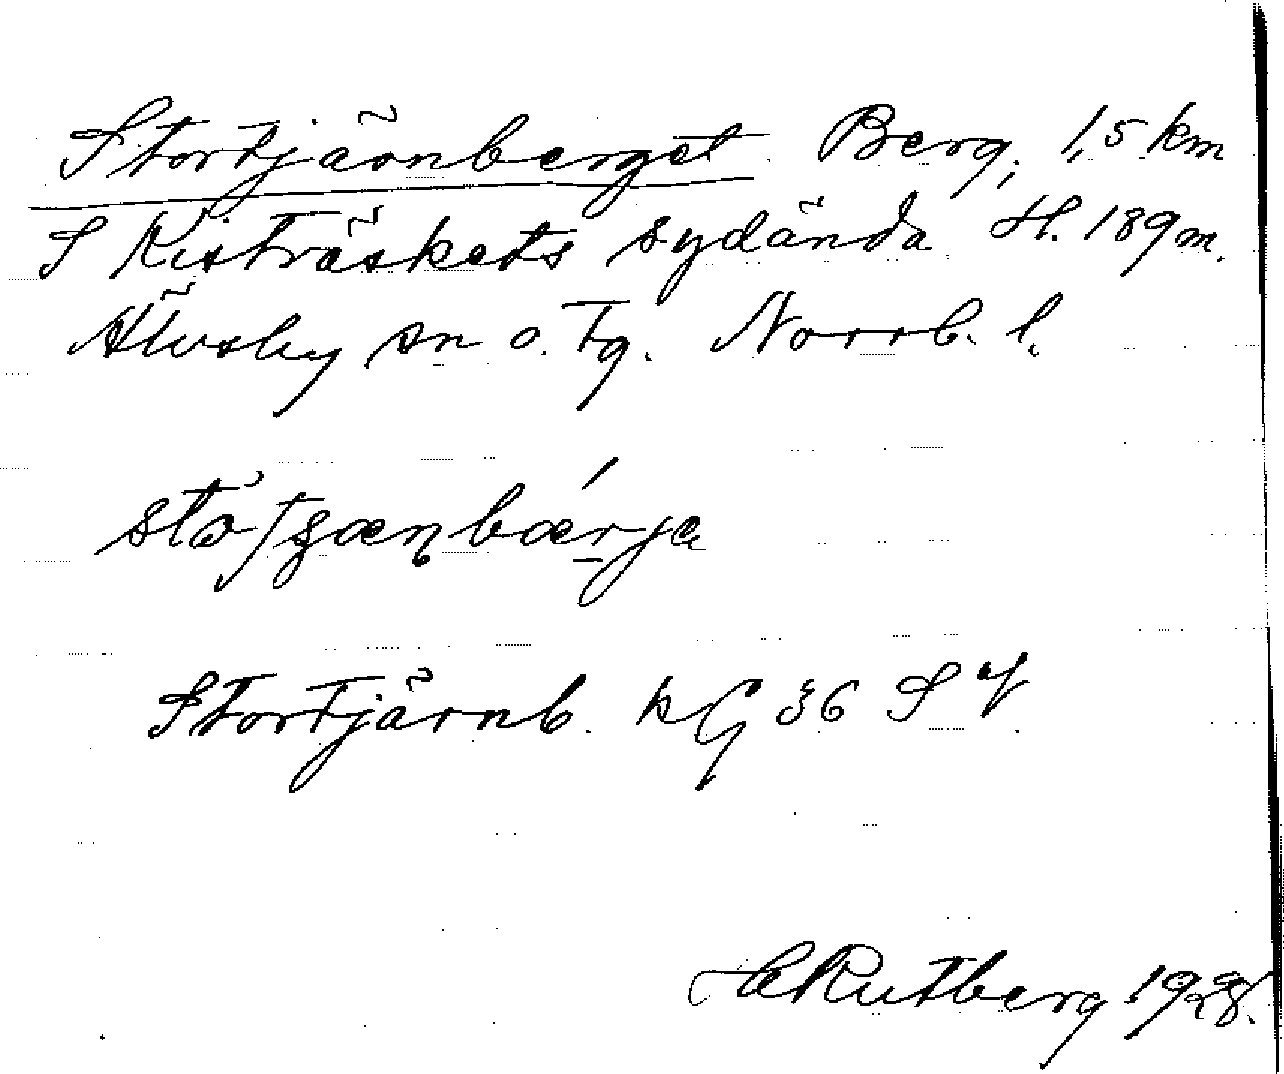 Stortjärnberget Berg, 1,5 km
S Kisträskets sydända H. 189 m.
Älvsby sn o. tg. Norrb. l.
Stortjärnb. kG 36 S V
Rutberg 1928.